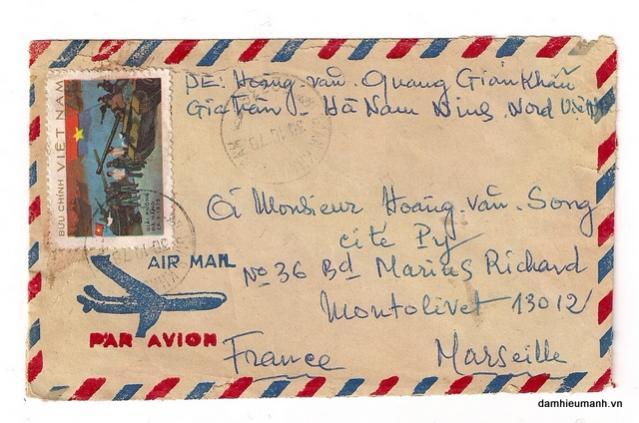 DE: Hoàng. Văn. Quang Gián Khẩu
Gia Trấn. Hà Nam Ninh, Nord Việt
BƯU CHÍNH VIỆT NAM
30.10.79
Ơi Monsieur Hoàng. Văn. Song
cité Py
AIR MAIL
No 36 Bd Marius Richard
Montolivet 13012
PAR AVION
France Marseille
damhieumanh.vn